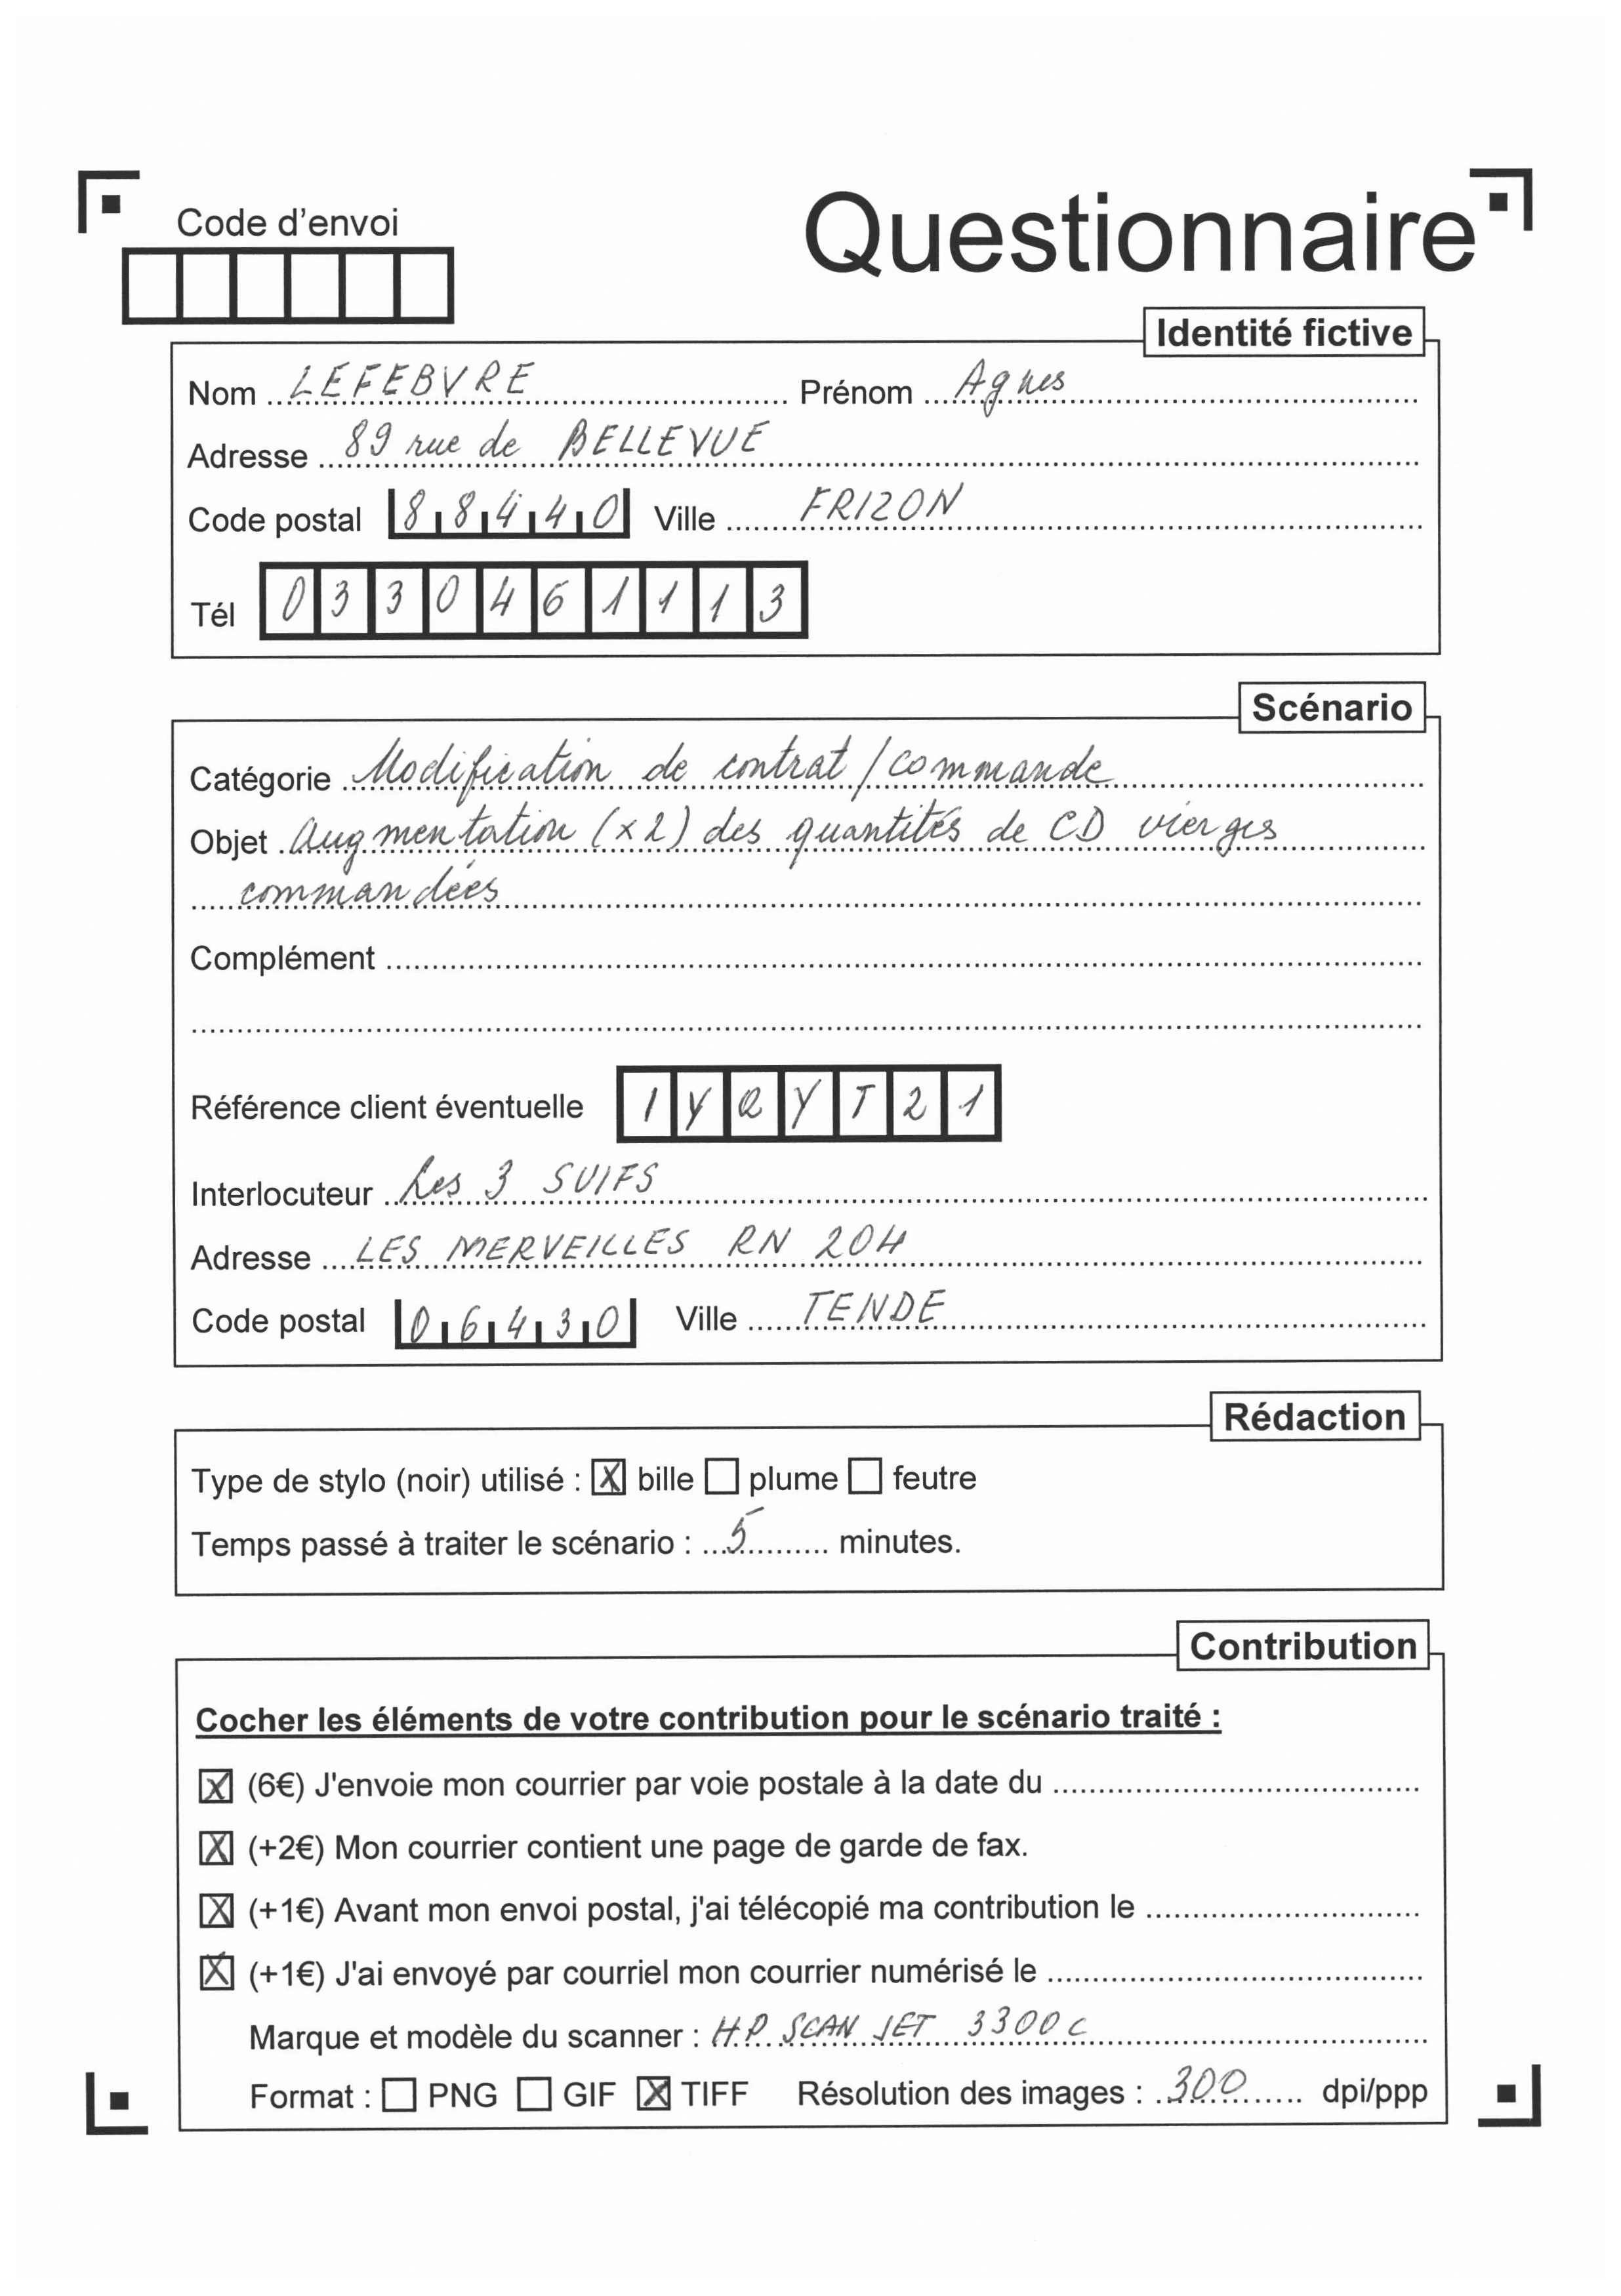 Code d'envoi
Questionnaire
Identité fictive
Nom LEFEBVRE Prénom Agnes
Adresse 89 rue de BELLEVUE
Code postal 88440 Ville FRIZON
Tél 0330461113
Scénario
Catégorie Modification de contrat / commande
Objet Augmentation (x2) des quantités de CD vierges
commandées
Complément
Référence client éventuelle IYQYT21
Interlocuteur Les 3 SUIFS
Adresse LES MERVEILLES RN 204
Code postal 06430 Ville TENDE
Rédaction
Type de stylo (noir) utilisé : X bille plume feutre
Temps passé à traiter le scénario : 5 minutes.
Contribution
Cocher les éléments de votre contribution pour le scénario traité :
X (6€) J'envoie mon courrier par voie postale à la date du
X (+2€) Mon courrier contient une page de garde de fax.
X (+1€) Avant mon envoi postal, j'ai télécopié ma contribution le
X (+1€) J'ai envoyé par courriel mon courrier numérisé le
Marque et modèle du scanner : H.P. SCAN JET 3300 C
Format : PNG GIF X TIFF Résolution des images : 300 dpi/ppp